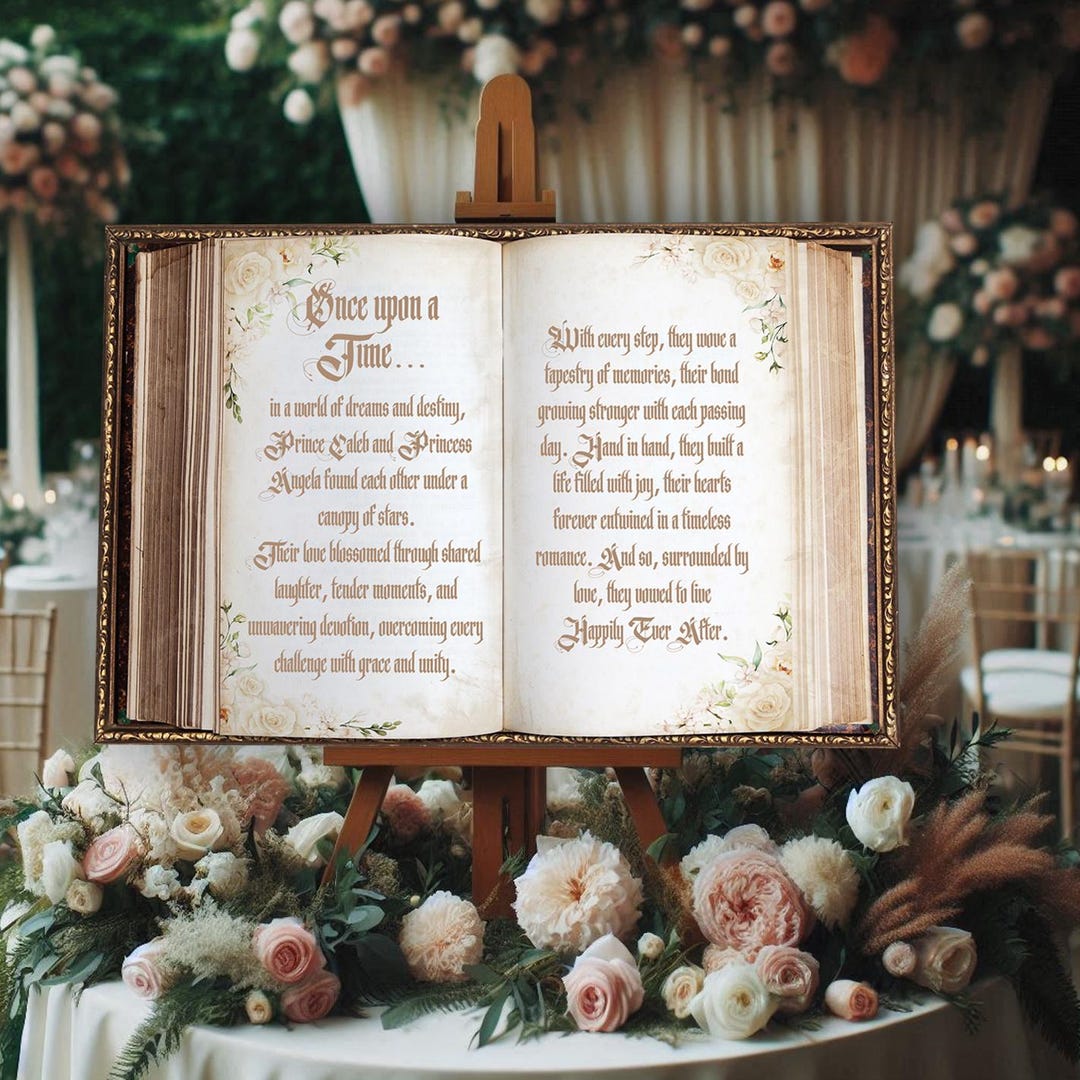 Once upon a
Time...
in a world of dreams and destiny,
Prince Caleb and Princess
Angela found each other under a
canopy of stars.
Their love blossomed through shared
laughter, tender moments, and
unwavering devotion, overcoming every
challenge with grace and unity.
With every step, they wove a
tapestry of memories, their bond
growing stronger with each passing
day. Hand in hand, they built a
life filled with joy, their hearts
forever entwined in a timeless
romance. And so, surrounded by
love, they vowed to live
Happily Ever After.